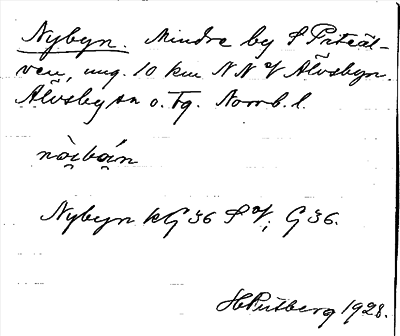 Nybyn. Mindre by S Piteäl-
ven, ung. 10 km NNV Älvsbyn.
Älvsby sn o. tg. Norrb. l.
nòi̯bá̤n
Nybyn kG 36 SV; G 36.
HPutberg 1928.